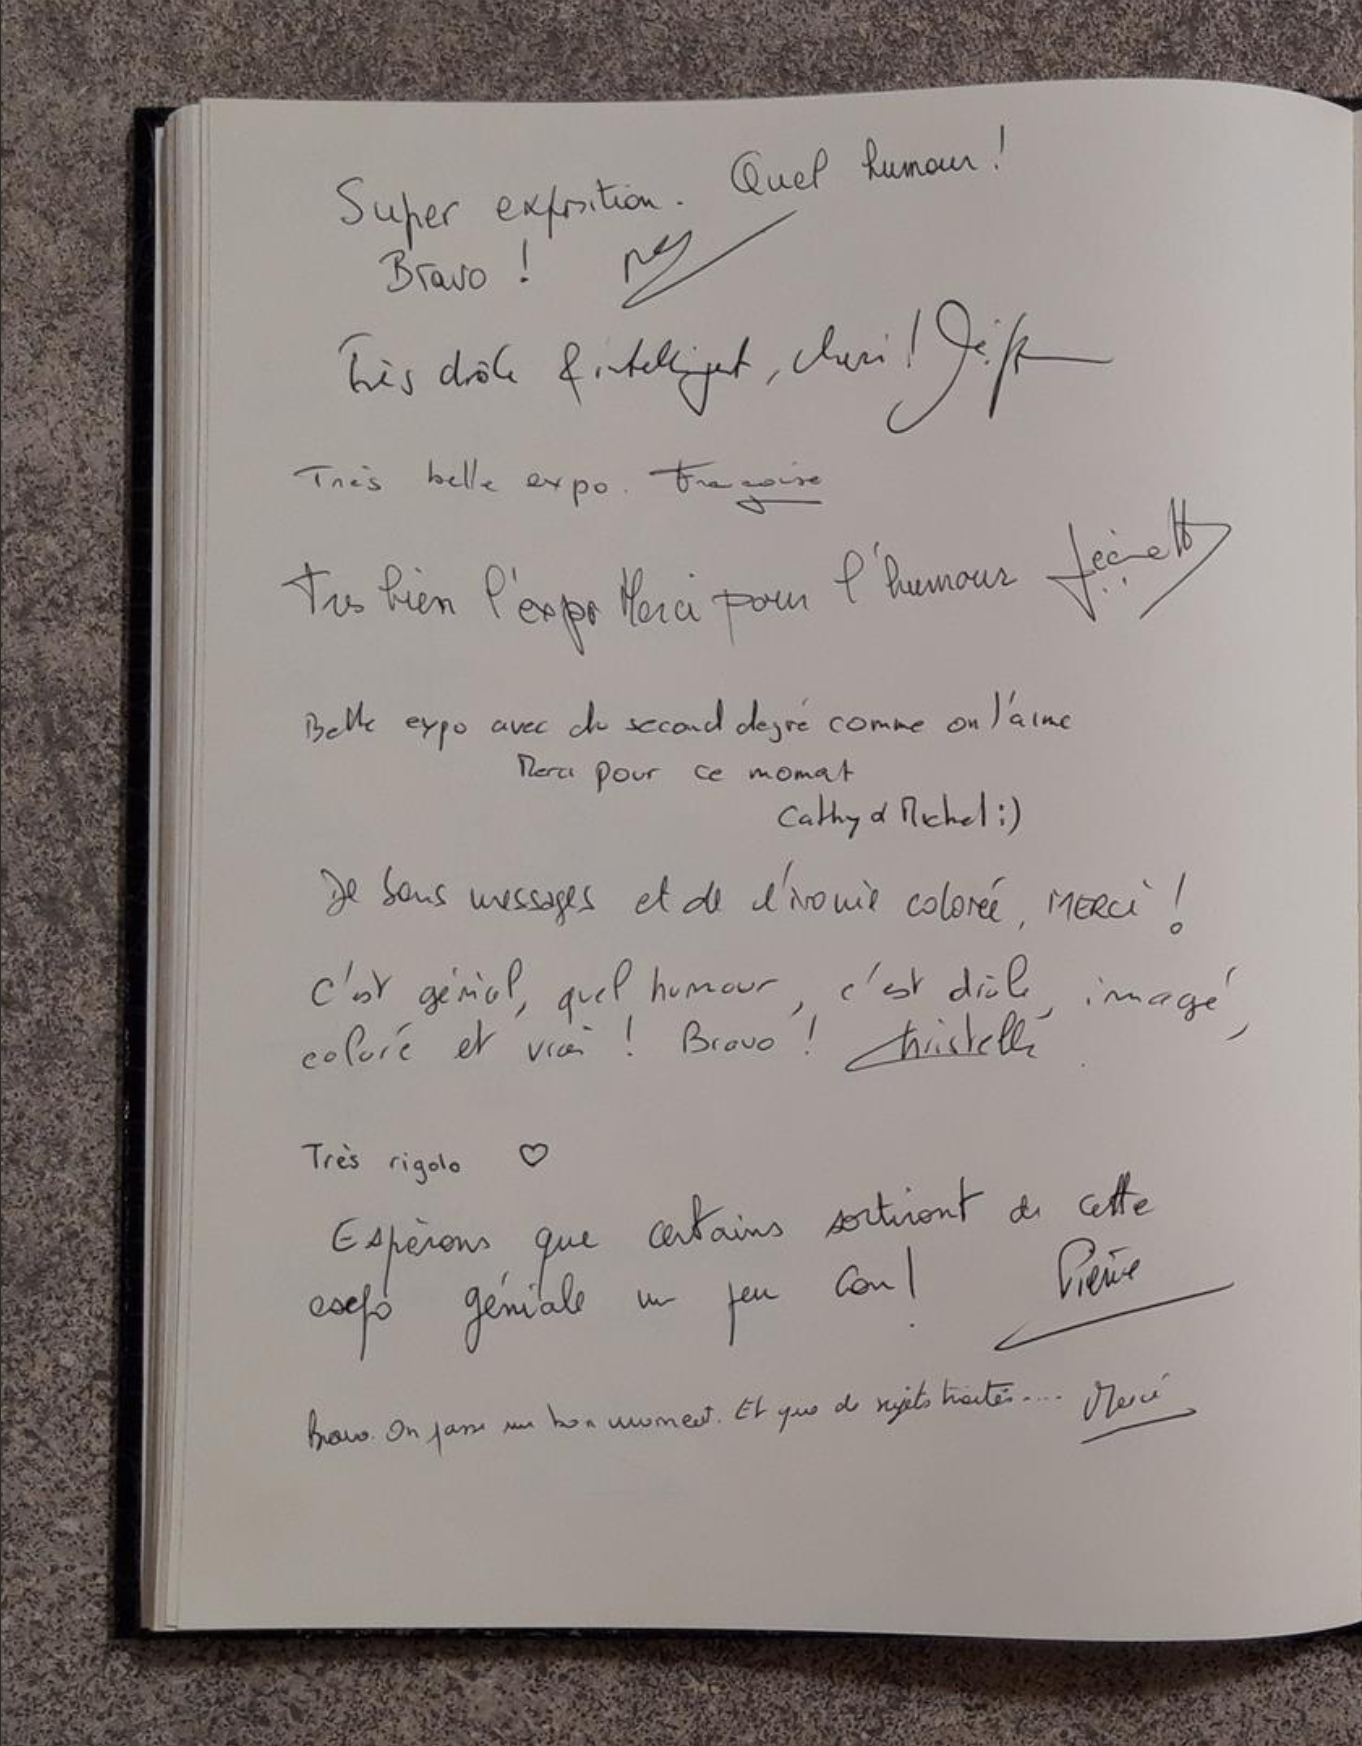 Super exposition. Quel humour !
Bravo !
Très drôle & intelligent, merci !
Très belle expo. Françoise
Tres bien l'expo Merci pour l'humour
Belle expo avec du second degré comme on l'aime
Merci pour ce moment
Cathy & Michel :)
De bons messages et de l'ironie colorée, MERCI !
C'est génial, quel humour, c'est drôle, imagé,
coloré et vrai ! Bravo ! Christelle
Très rigolo ♡
Espèrons que certains sortiront de cette
expo géniale un peu con ! Pierre
Bravo. On passe un bon moment. Et que de sujets traités.... Merci